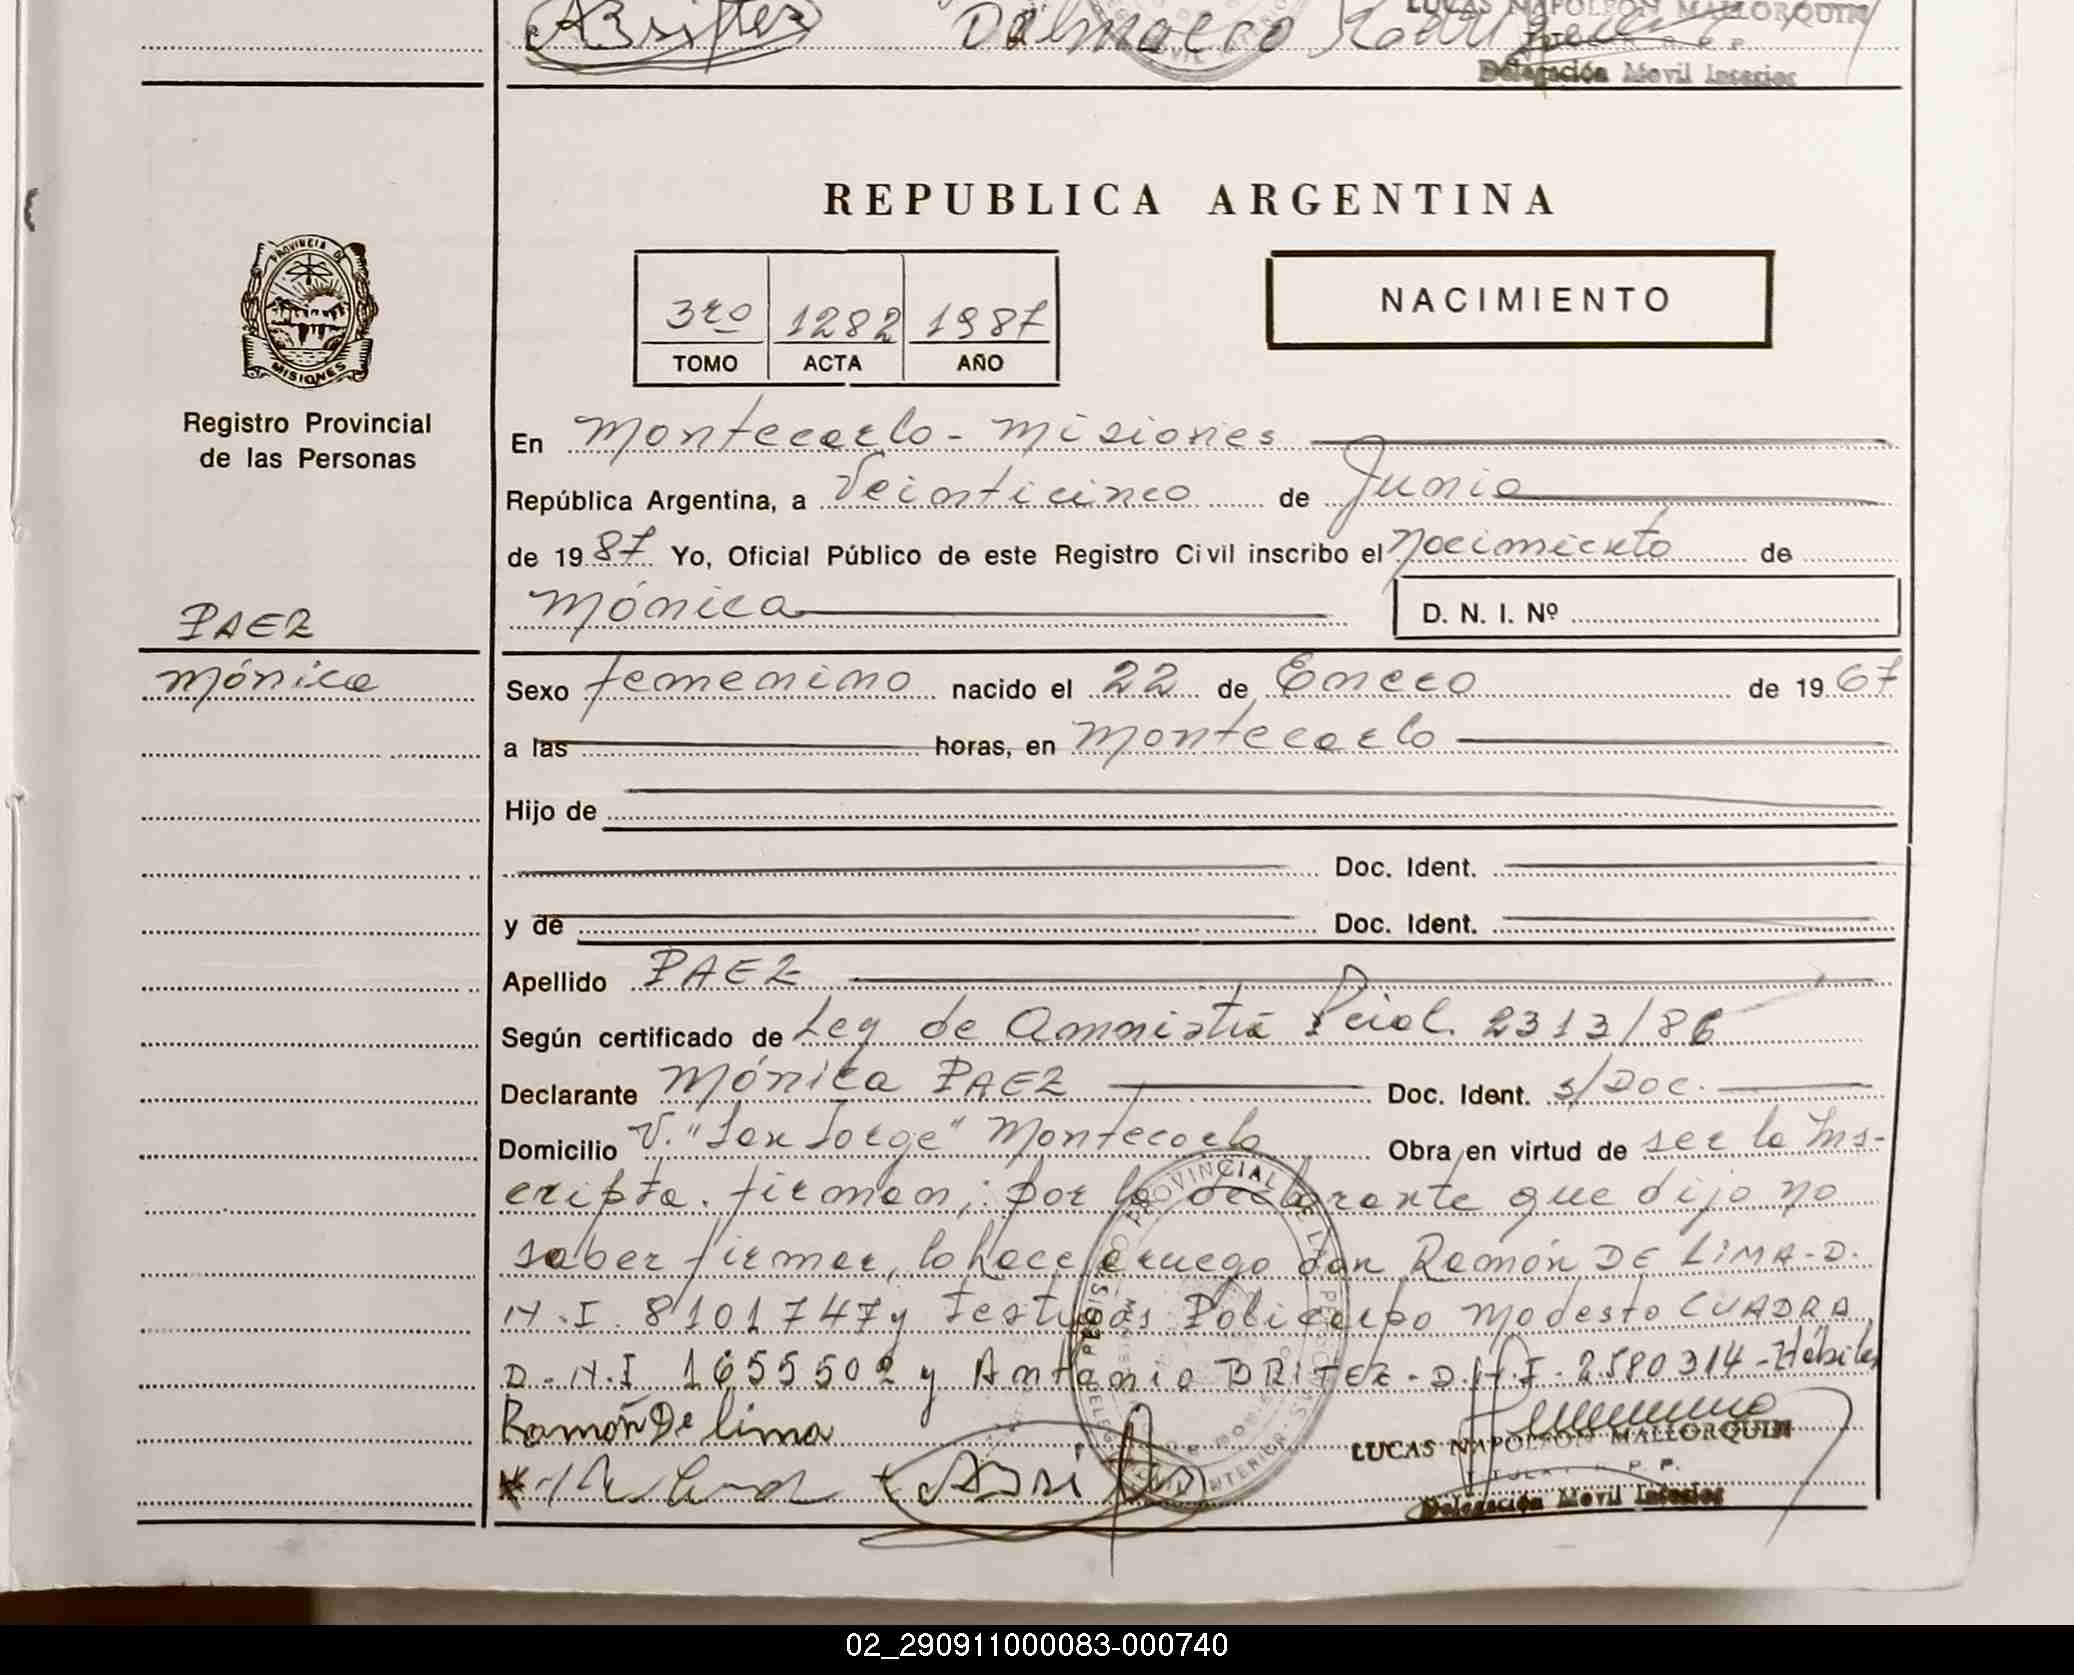 ABritez Dalmacio Rodriguez LUCAS NAPOLEON MALLORQUIN
Delegación Movil Interior
REPUBLICA ARGENTINA
PROVINCIA DE
MISIONES
Registro Provincial
de las Personas
3ro 1282 1987
TOMO ACTA AÑO
NACIMIENTO
En Montecarlo - Misiones
República Argentina, a Veinticinco de Junio
de 1987 Yo, Oficial Público de este Registro Civil inscribo el Nacimiento de
Mónica D. N. I. Nº
PAEZ
Mónica
Sexo femenino nacido el 22 de Enero de 1967
a las horas, en Montecarlo
Hijo de
Doc. Ident.
y de Doc. Ident.
Apellido PAEZ
Según certificado de Ley de Amnistía Pcial. 2313/86
Declarante Mónica PAEZ Doc. Ident. s/Doc.
Domicilio V. "San Jorge" Montecarlo Obra en virtud de ser la Ins-
cripta. firman; por la declarante que dijo no
saber firmar, lo hace a ruego don Ramón DE LIMA-D.
N.I. 8101747 y Testigos Policarpo Modesto CUADRA
D.N.I 1655502 y Antonio BRITEZ - D.N.I. 2.580314 - Hábiles
Ramón De lima
ABritez
LUCAS NAPOLEON MALLORQUIN
TITULAR R. P. P.
Delegación Movil Interior
02_290911000083-000740